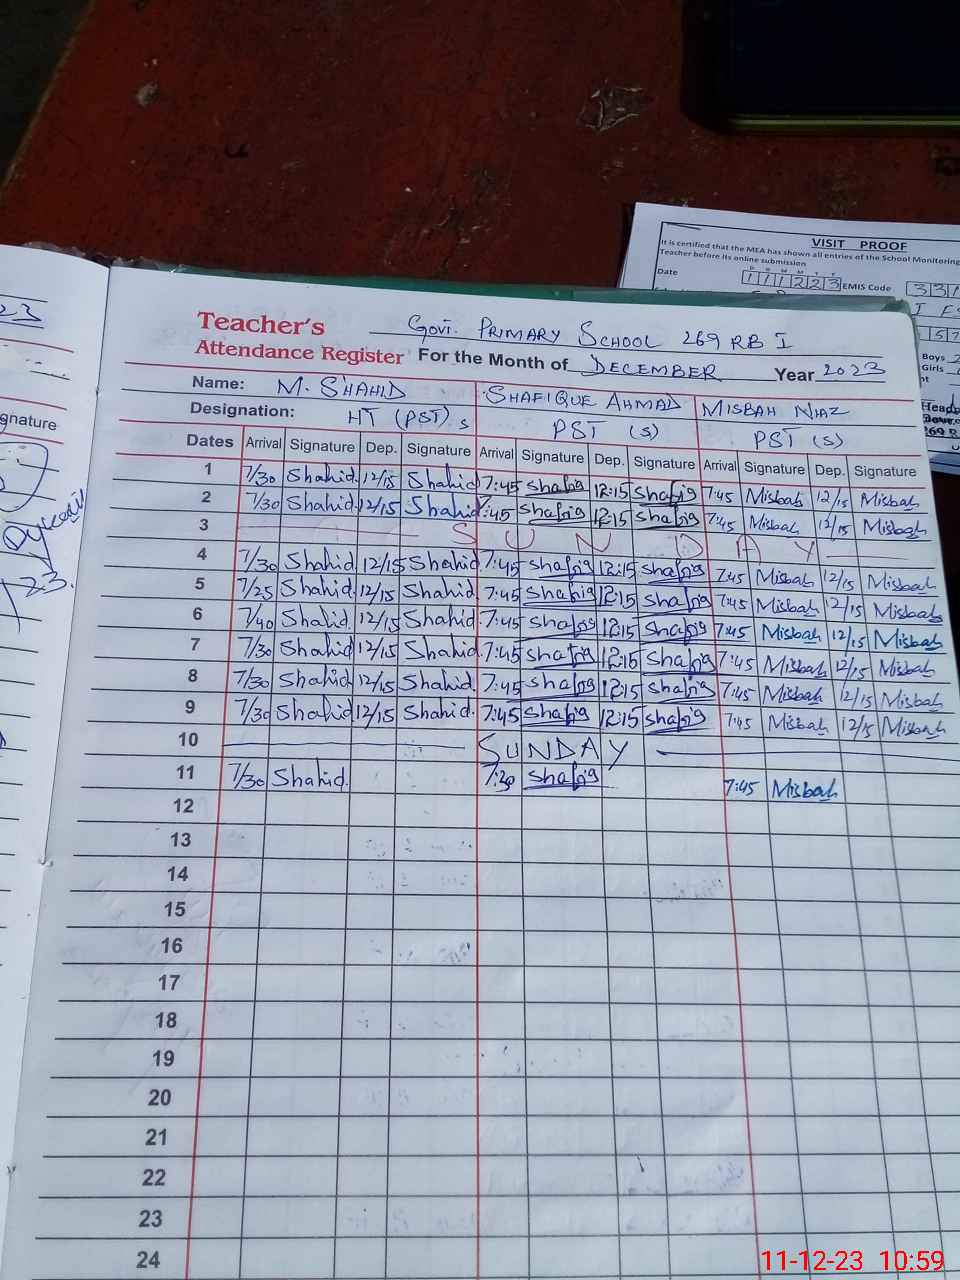 23
gnature
23.
VISIT PROOF
It is certified that the MEA has shown all entries of the School Monitoring
Teacher before its online submission
D D M M Y Y
Date 111223 EMIS Code 331
Boys 2
Girls
Head
269 R
Teacher's Govt. PRIMARY SCHOOL 269 RB I
Attendance Register For the Month of DECEMBER Year 2023
Name: M. SHAHID SHAFIQUE AHMAD MISBAH NIAZ
Designation: HT (PST) s PST (S) PST (S)
Dates Arrival Signature Dep. Signature Arrival Signature Dep. Signature Arrival Signature Dep. Signature
1 7/30 Shahid. 12/15 Shahid 7:45 Shafiq 12:15 Shafiq 7:45 Misbah 12/15 Misbah
2 7/30 Shahid. 12/15 Shahid 7:45 Shafiq 12:15 Shafiq 7:45 Misbah 12/15 Misbah
3 S U N D A Y
4 7/30 Shahid. 12/15 Shahid. 7:45 Shafiq 12:15 Shafiq 7:45 Misbah 12/15 Misbah
5 7/25 Shahid. 12/15 Shahid. 7:45 Shafiq 12:15 Shafiq 7:45 Misbah 12/15 Misbah
6 7/40 Shahid. 12/15 Shahid. 7:45 Shafiq 12:15 Shafiq 7:45 Misbah 12/15 Misbah
7 7/30 Shahid 12/15 Shahid. 7:45 Shafiq 12:15 Shafiq 7:45 Misbah 12/15 Misbah
8 7/30 Shahid. 12/15 Shahid. 7:45 Shafiq 12:15 Shafiq 7:45 Misbah 12/15 Misbah
9 7/30 Shahid 12/15 Shahid. 7:45 Shafiq 12:15 Shafiq 7:45 Misbah 12/15 Misbah
10 SUNDAY
11 7/30 Shahid. 7:30 Shafiq 7:45 Misbah
12
13
14
15
16
17
18
19
20
21
22
23
24
11-12-23 10:59